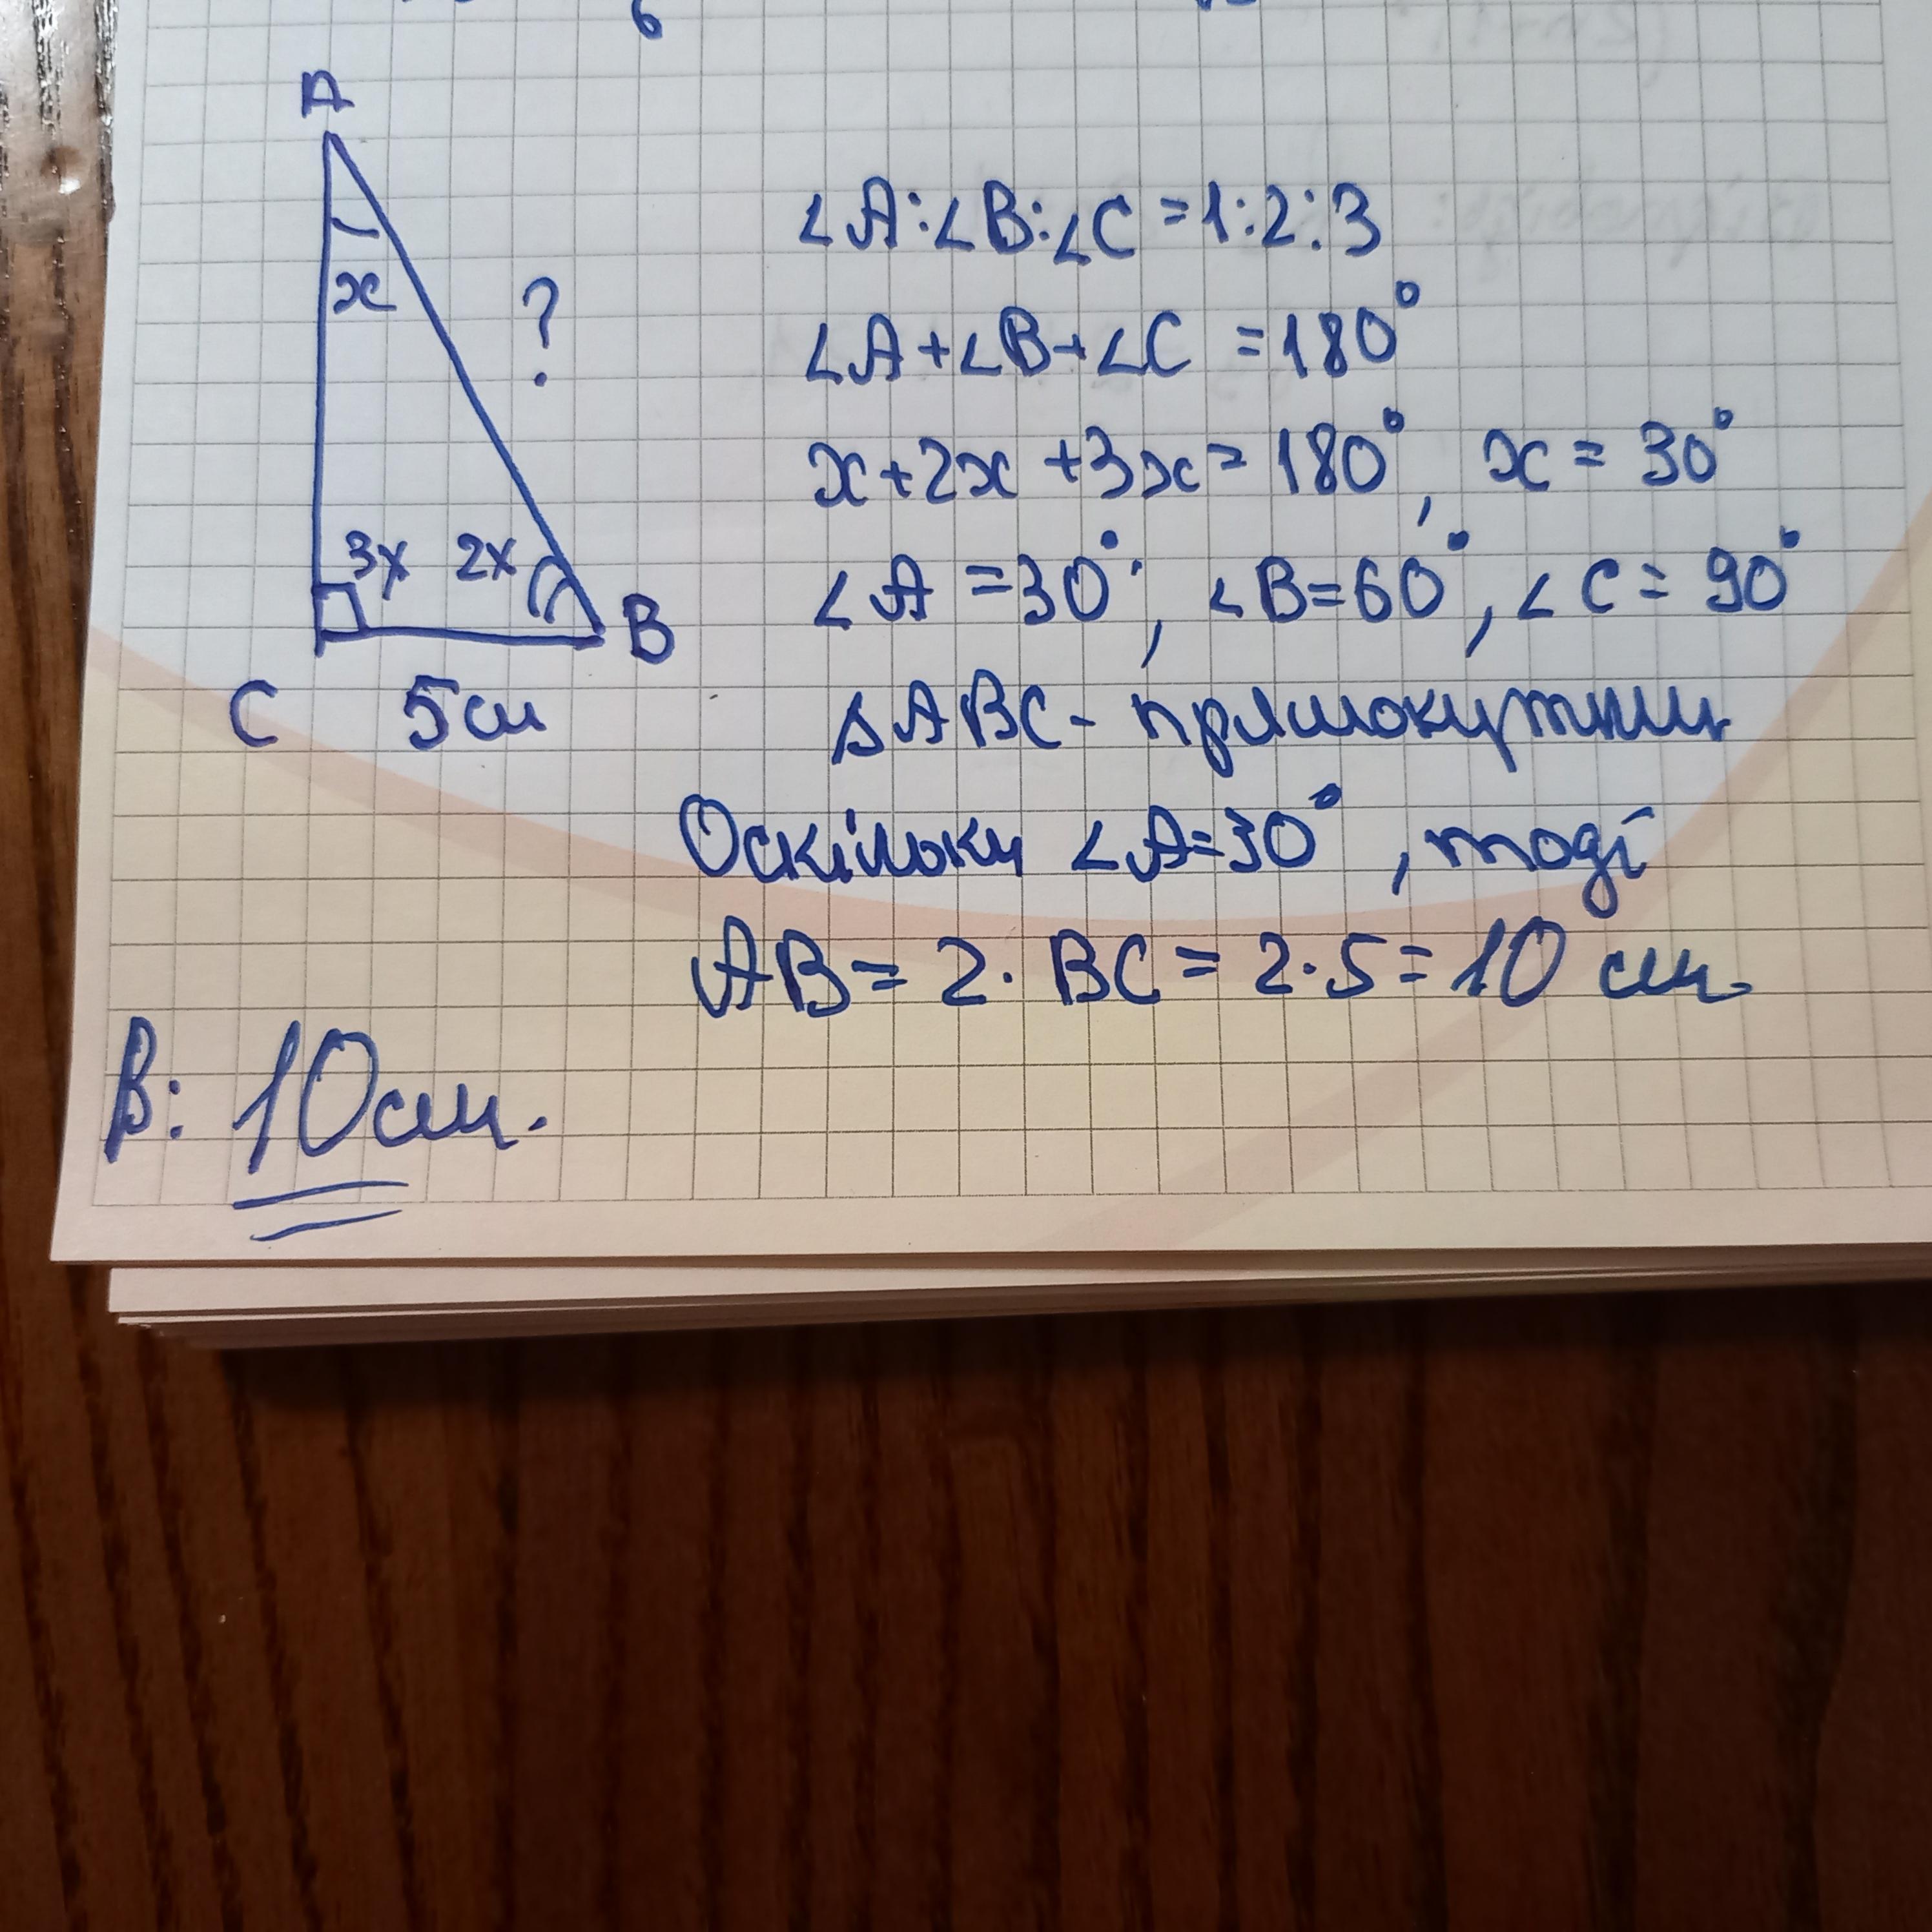 6
A
x
?
3x 2x
C
B
5см
∠A:∠B:∠C=1:2:3
∠A+∠B+∠C=180°
x+2x+3x=180°, x=30°
∠A=30°, ∠B=60°, ∠C=90°
ΔABC- прямокутний
Оскільки ∠A=30°, тоді
AB=2·BC=2·5=10 см.
В: 10см.